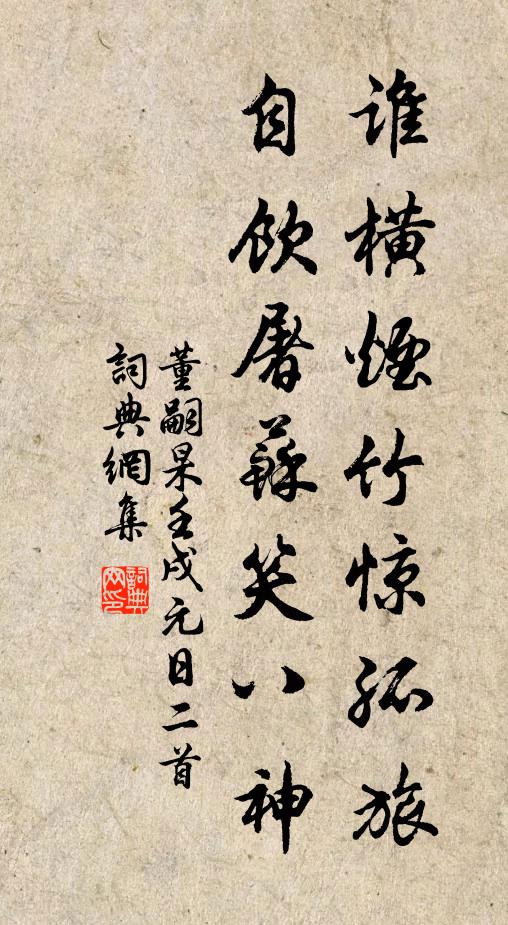 誰橫煙竹惊孤旅
自飲屠蘇笑八神
董嗣杲壬戌元日二首
詞典網集
詞典
网印